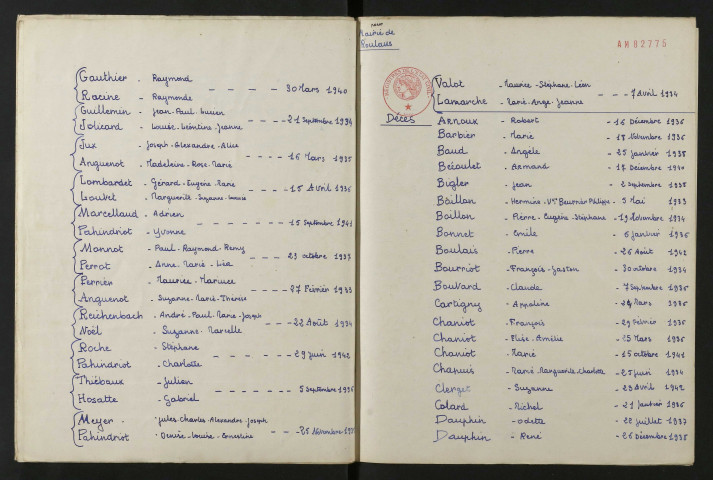 Gauthier - Raymond
Racine - Raymonde
30 Mars 1940
Guillemin - Jean-Paul-Lucien
Jolicard - Louise-Léontine-Jeanne
21 Septembre 1934
Jux - Joseph-Alexandre-Alice
Anguenot - Madeleine-Rose-Marie
16 Mars 1935
Lombardet - Gérard-Eugène-Marie
Louvet - Marguerite-Suzanne-Louise
15 Avril 1936
Marcellaud - Adrien
Pahindriot - Yvonne
15 Septembre 1941
Monnot - Paul-Raymond-Remy
Perrot - Anne-Marie-Léa
23 octobre 1937
Perrier - Maurice-Marius
Anguenot - Suzanne-Marie-Thérèse
27 Février 1933
Reichenbach - André-Paul-Marie-Joseph
Noël - Suzanne-Marcelle
22 Août 1934
Roche - Stéphane
Pahindriot - Charlotte
29 Juin 1942
Thiébaux - Julien
Hosatte - Gabriel
5 Septembre 1936
Meyer - Jules-Charles-Alexandre-Joseph
Pahindriot - Denise-Louise-Ernestine
25 Novembre
Mairie de
Roulans
AM 82775
Valot - Maurice-Stéphane-Léon
Lamarche - Marie-Ange-Jeanne
7 Avril 1934
Décès
Arnoux - Robert - 16 Décembre 1936
Barbier - Marie - 17 Novembre 1936
Baud - Angèle - 25 Janvier 1938
Bécoulet - Armand - 17 Décembre 1940
Bigler - Jean - 2 Septembre 1938
Boillon - Hermine Vve Beurnier Philippe - 5 Mai 1933
Boillon - Pierre-Eugène-Stéphane - 19 Novembre 1934
Bonnet - Emile - 6 Janvier 1936
Boulais - Pierre - 26 Août 1942
Bourriot - François-Gaston - 30 octobre 1934
Bouvard - Claude - 7 Septembre 1936
Cartigny - Appoline - 24 Mars 1936
Chaniot - François - 29 Février 1936
Chaniot - Elise-Amélie - 25 Mars 1936
Chaniot - Marie - 15 octobre 1941
Chapuis - Marie-Marguerite-Charlotte - 25 Juin 1934
Clerget - Suzanne - 23 Avril 1942
Colard - Michel - 21 Janvier 1936
Dauphin - odette - 22 Juillet 1937
Dauphin - René - 26 Décembre 1938